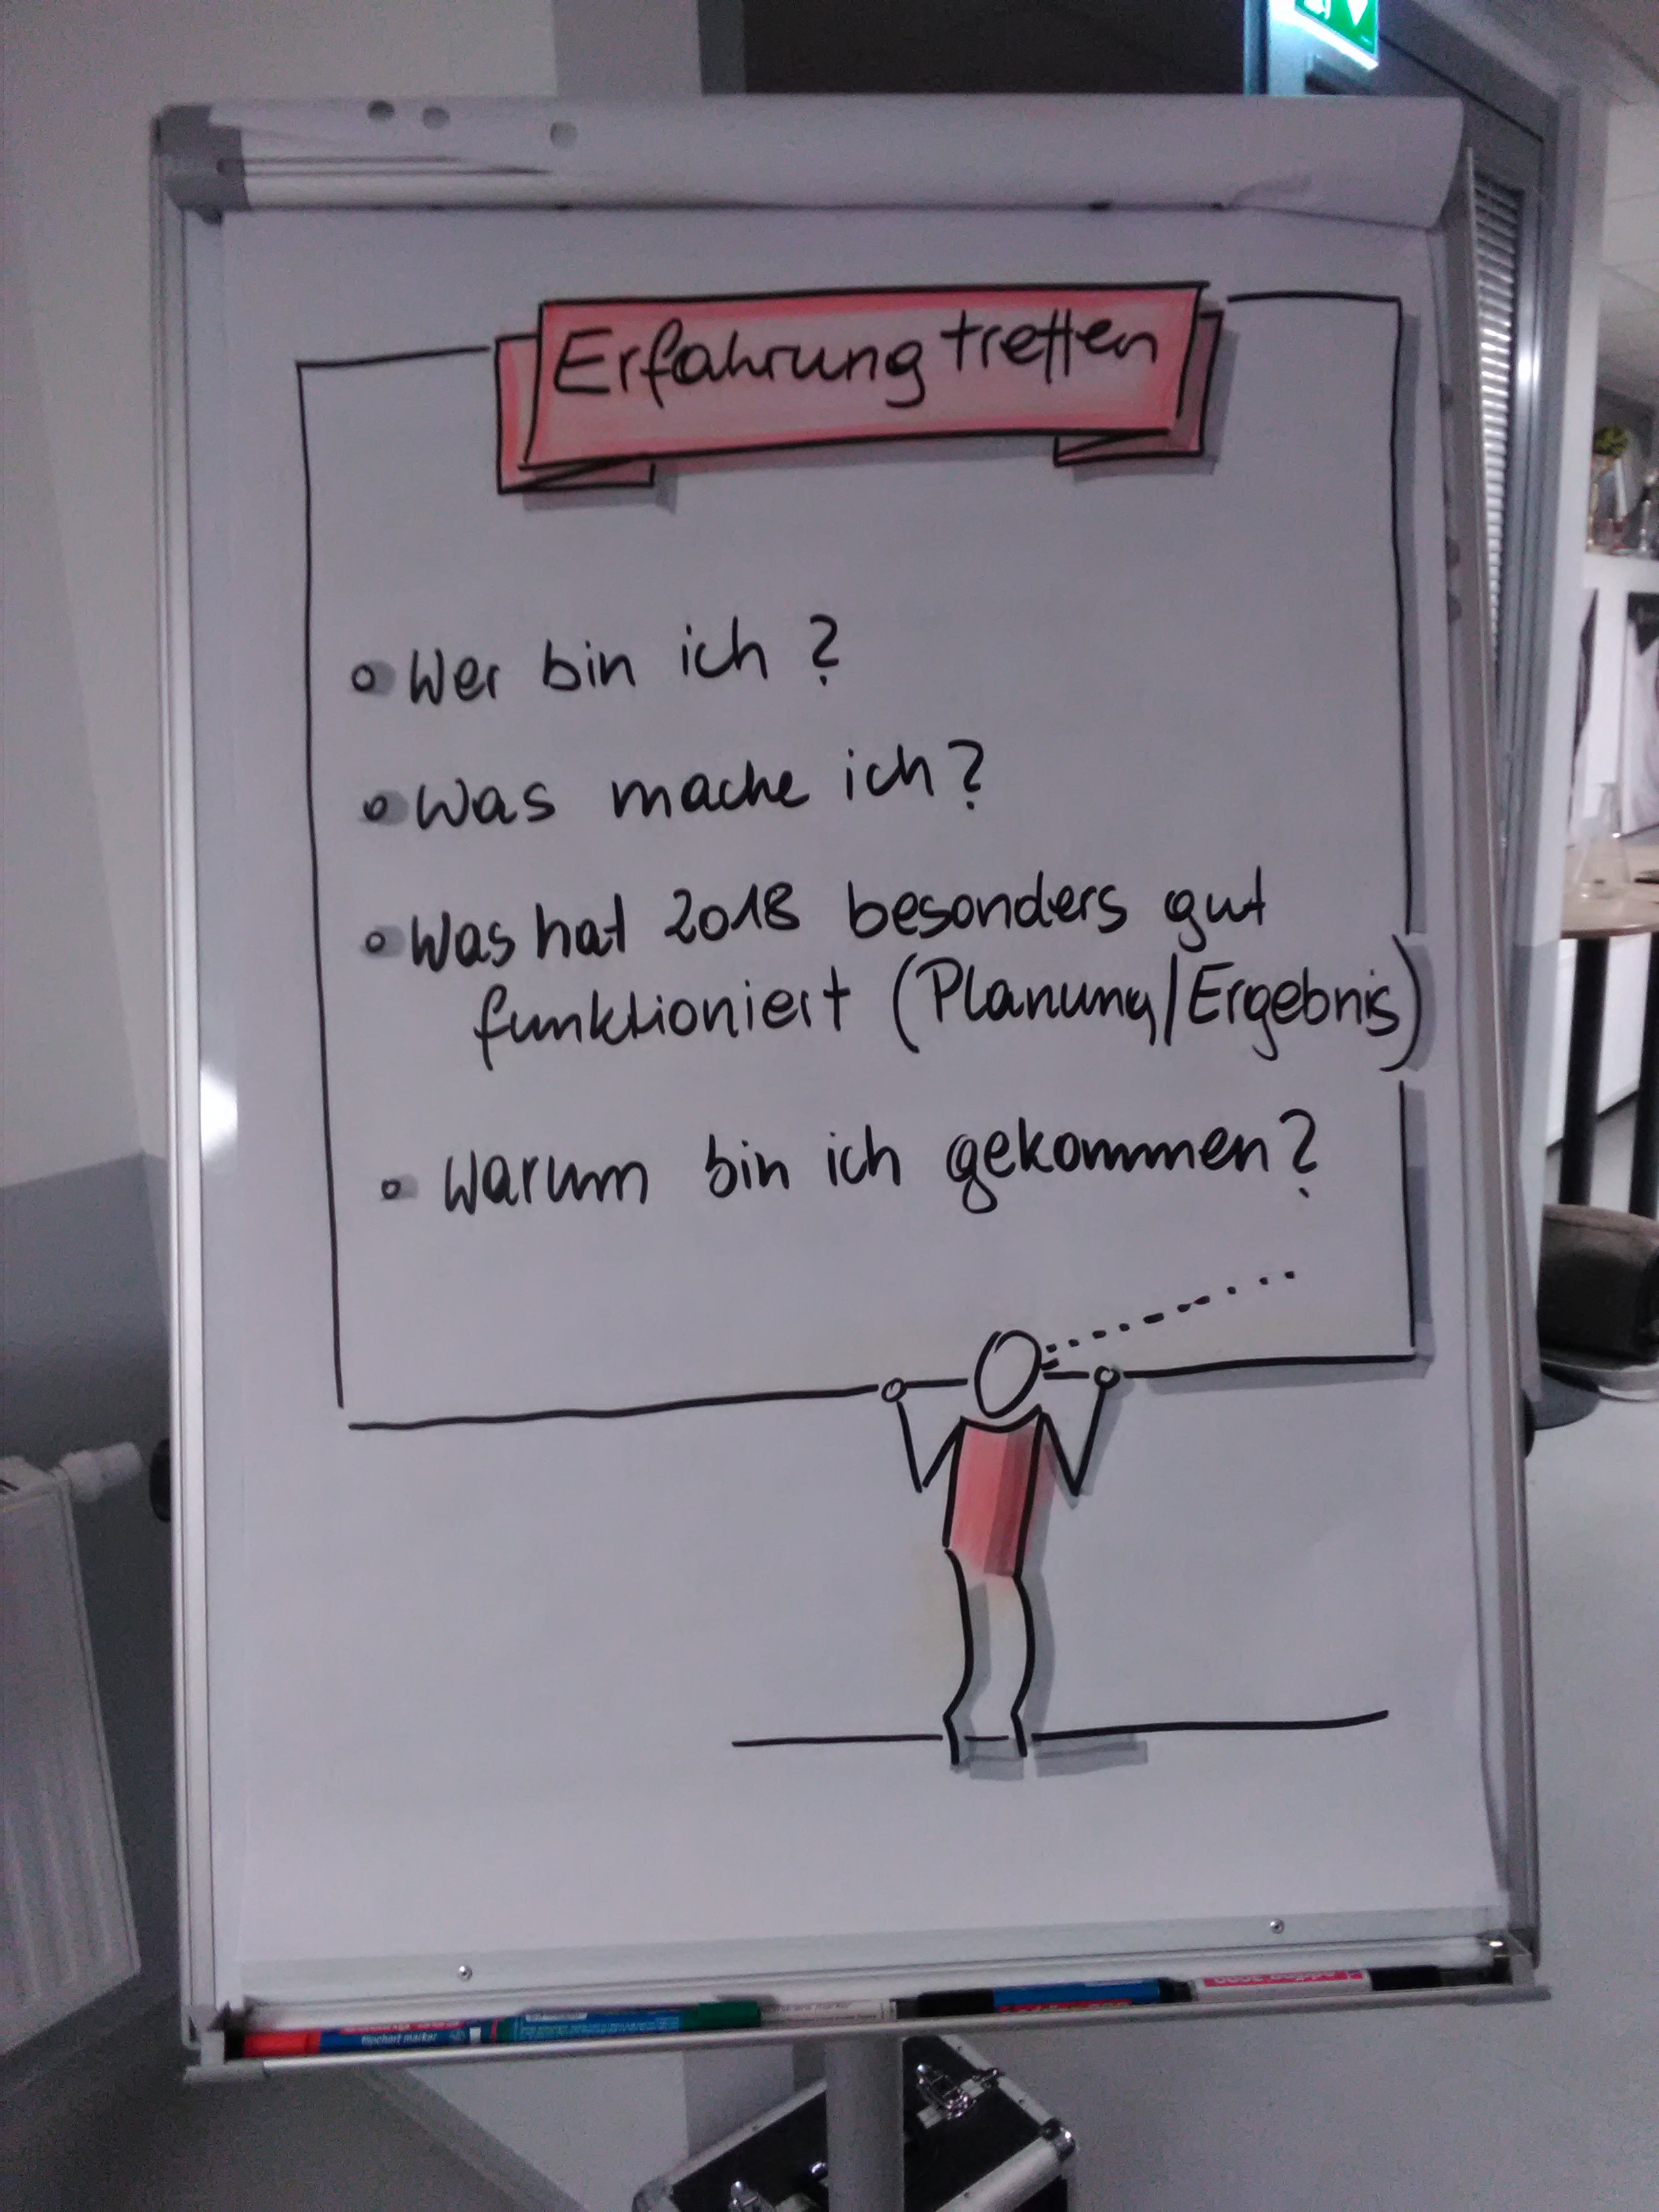 Erfahrung treffen
Wer bin ich?
Was mache ich?
Was hat 2018 besonders gut
funktioniert (Planung/Ergebnis)
Warum bin ich gekommen?
flipchart marker